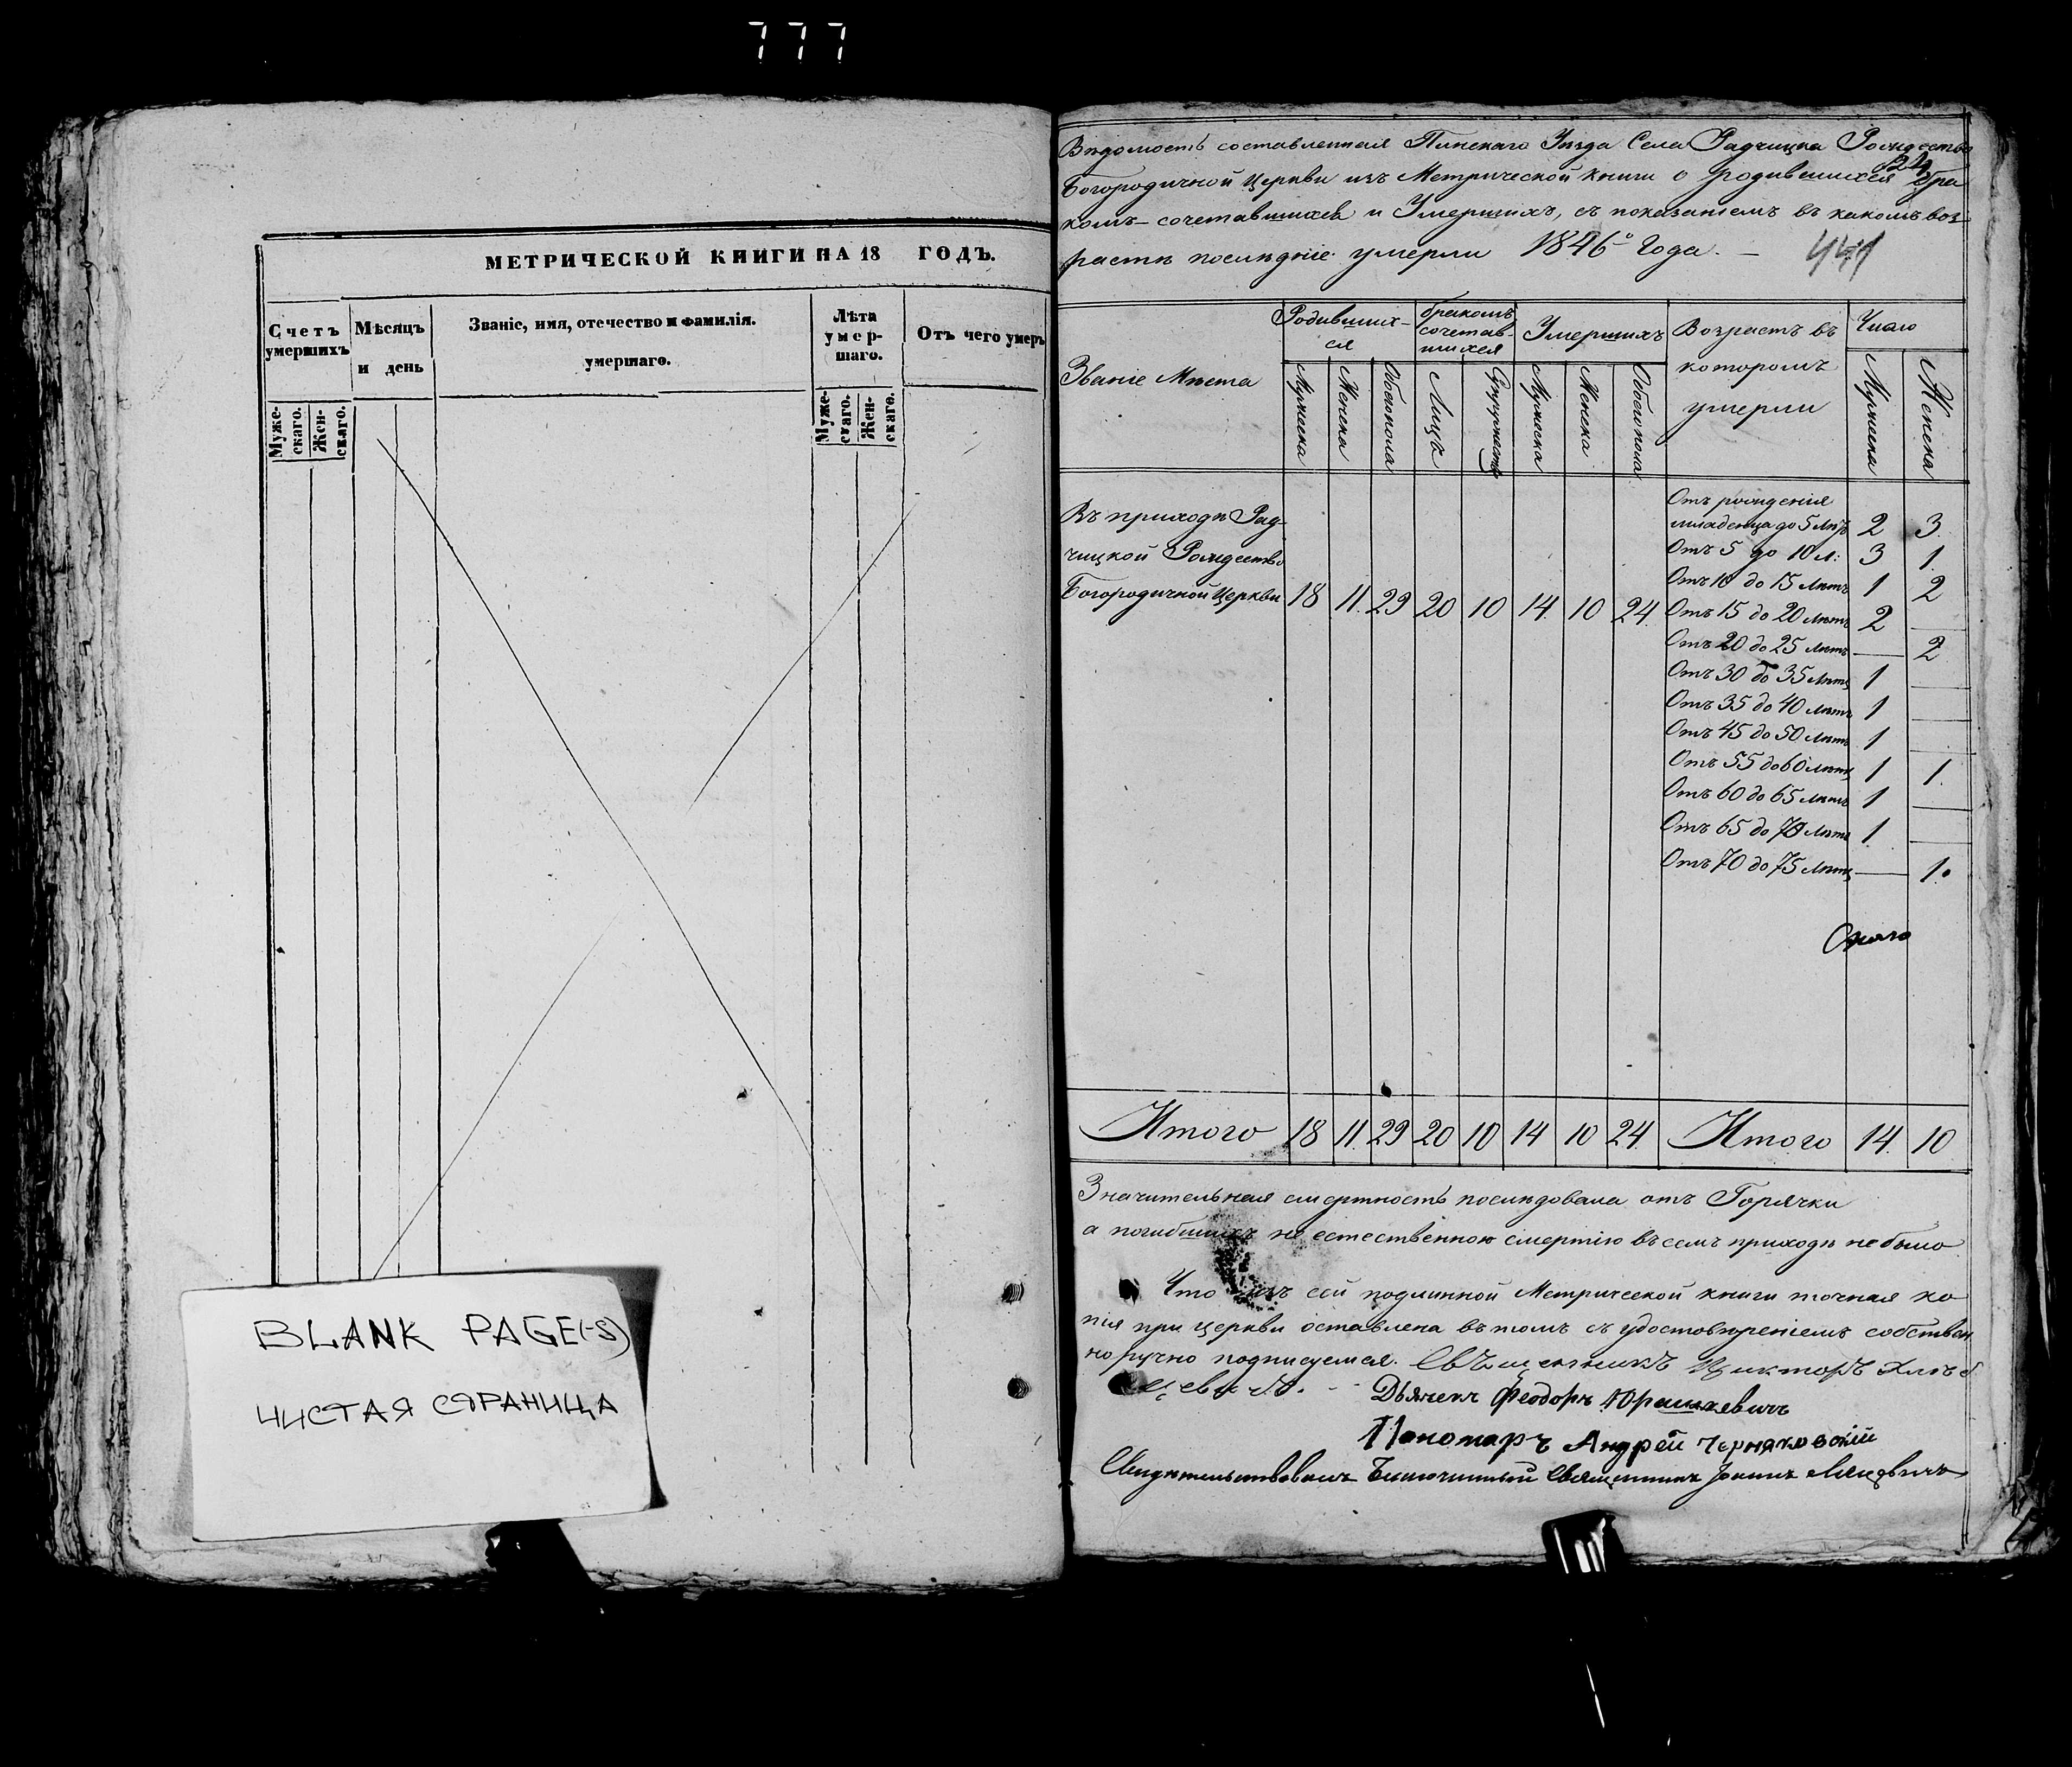 777
МЕТРИЧЕСКОЙ КНИГИ НА 18 ГОДЪ.
Счетъ умершихъ
Мѣсяцъ и день
Званіе, имя, отечество и фамилія. умершаго.
Лѣта умер-шаго.
Отъ чего умеръ
Муже-скаго.
Жен-скаго.
Муже-скаго.
Жен-скаго.
BLANK PAGE(-S)
ЧИСТАЯ СТРАНИЦА
Вѣдомость составленная Пинскаго Уѣзда Села Радчицка Рождество
24
Богородичной Церкви изъ Метрической книги о родившихся бра
комъ-сочетавшихся и Умершихъ, съ показаніемъ въ какомъ воз-
растѣ послѣдніе умерли 1846º Года. —
441
Званіе Мѣста
Родивших-ся
бракомъ сочетав-шихся
Умершихъ
Возрастъ въ которомъ умерли
Число
Мужеска
Женска
Обоего пола
Лицъ
Супружествъ
Мужеска
Женска
Обоего пола
Мужеска
Женска
Въ приходѣ Рад-
чицкой Рождество
Богородичной Церкви 18 11. 29 20 10 14. 10 24.
Отъ рожденія
младенца до 5 лѣтъ 2 3.
Отъ 5 до 10 л: 3 1.
Отъ 10 до 15 лѣтъ 1 2
Отъ 15 до 20 лѣтъ 2 —
Отъ 20 до 25 лѣтъ — 2.
Отъ 30 до 35 лѣтъ 1 —
Отъ 35 до 40 лѣтъ 1 —
Отъ 45 до 50 лѣтъ 1 —
Отъ 55 до 60 лѣтъ 1 1.
Отъ 60 до 65 лѣтъ 1 —
Отъ 65 до 70 лѣтъ 1 —
Отъ 70 до 75 лѣтъ — 1.
Итого 18 11. 29 20 10 14 10 24. Итого 14. 10
Значительная смертность послѣдовала отъ Горячки
а погибшихъ не естественною смертію въ семъ приходѣ не было
Что изъ сей подлинной Метрической книги точная ко
пія при церкви оставлена въ томъ съ удостовѣреніемъ собствен
но ручно подписуемся. Священникъ Викторъ Хлѣб
цевичъ. -
Дьячекъ Феодоръ Юрашкевичъ
Пономаръ Андрей Черняковскій
Свидѣтельствовалъ Благочинный Священникъ Іоаннъ